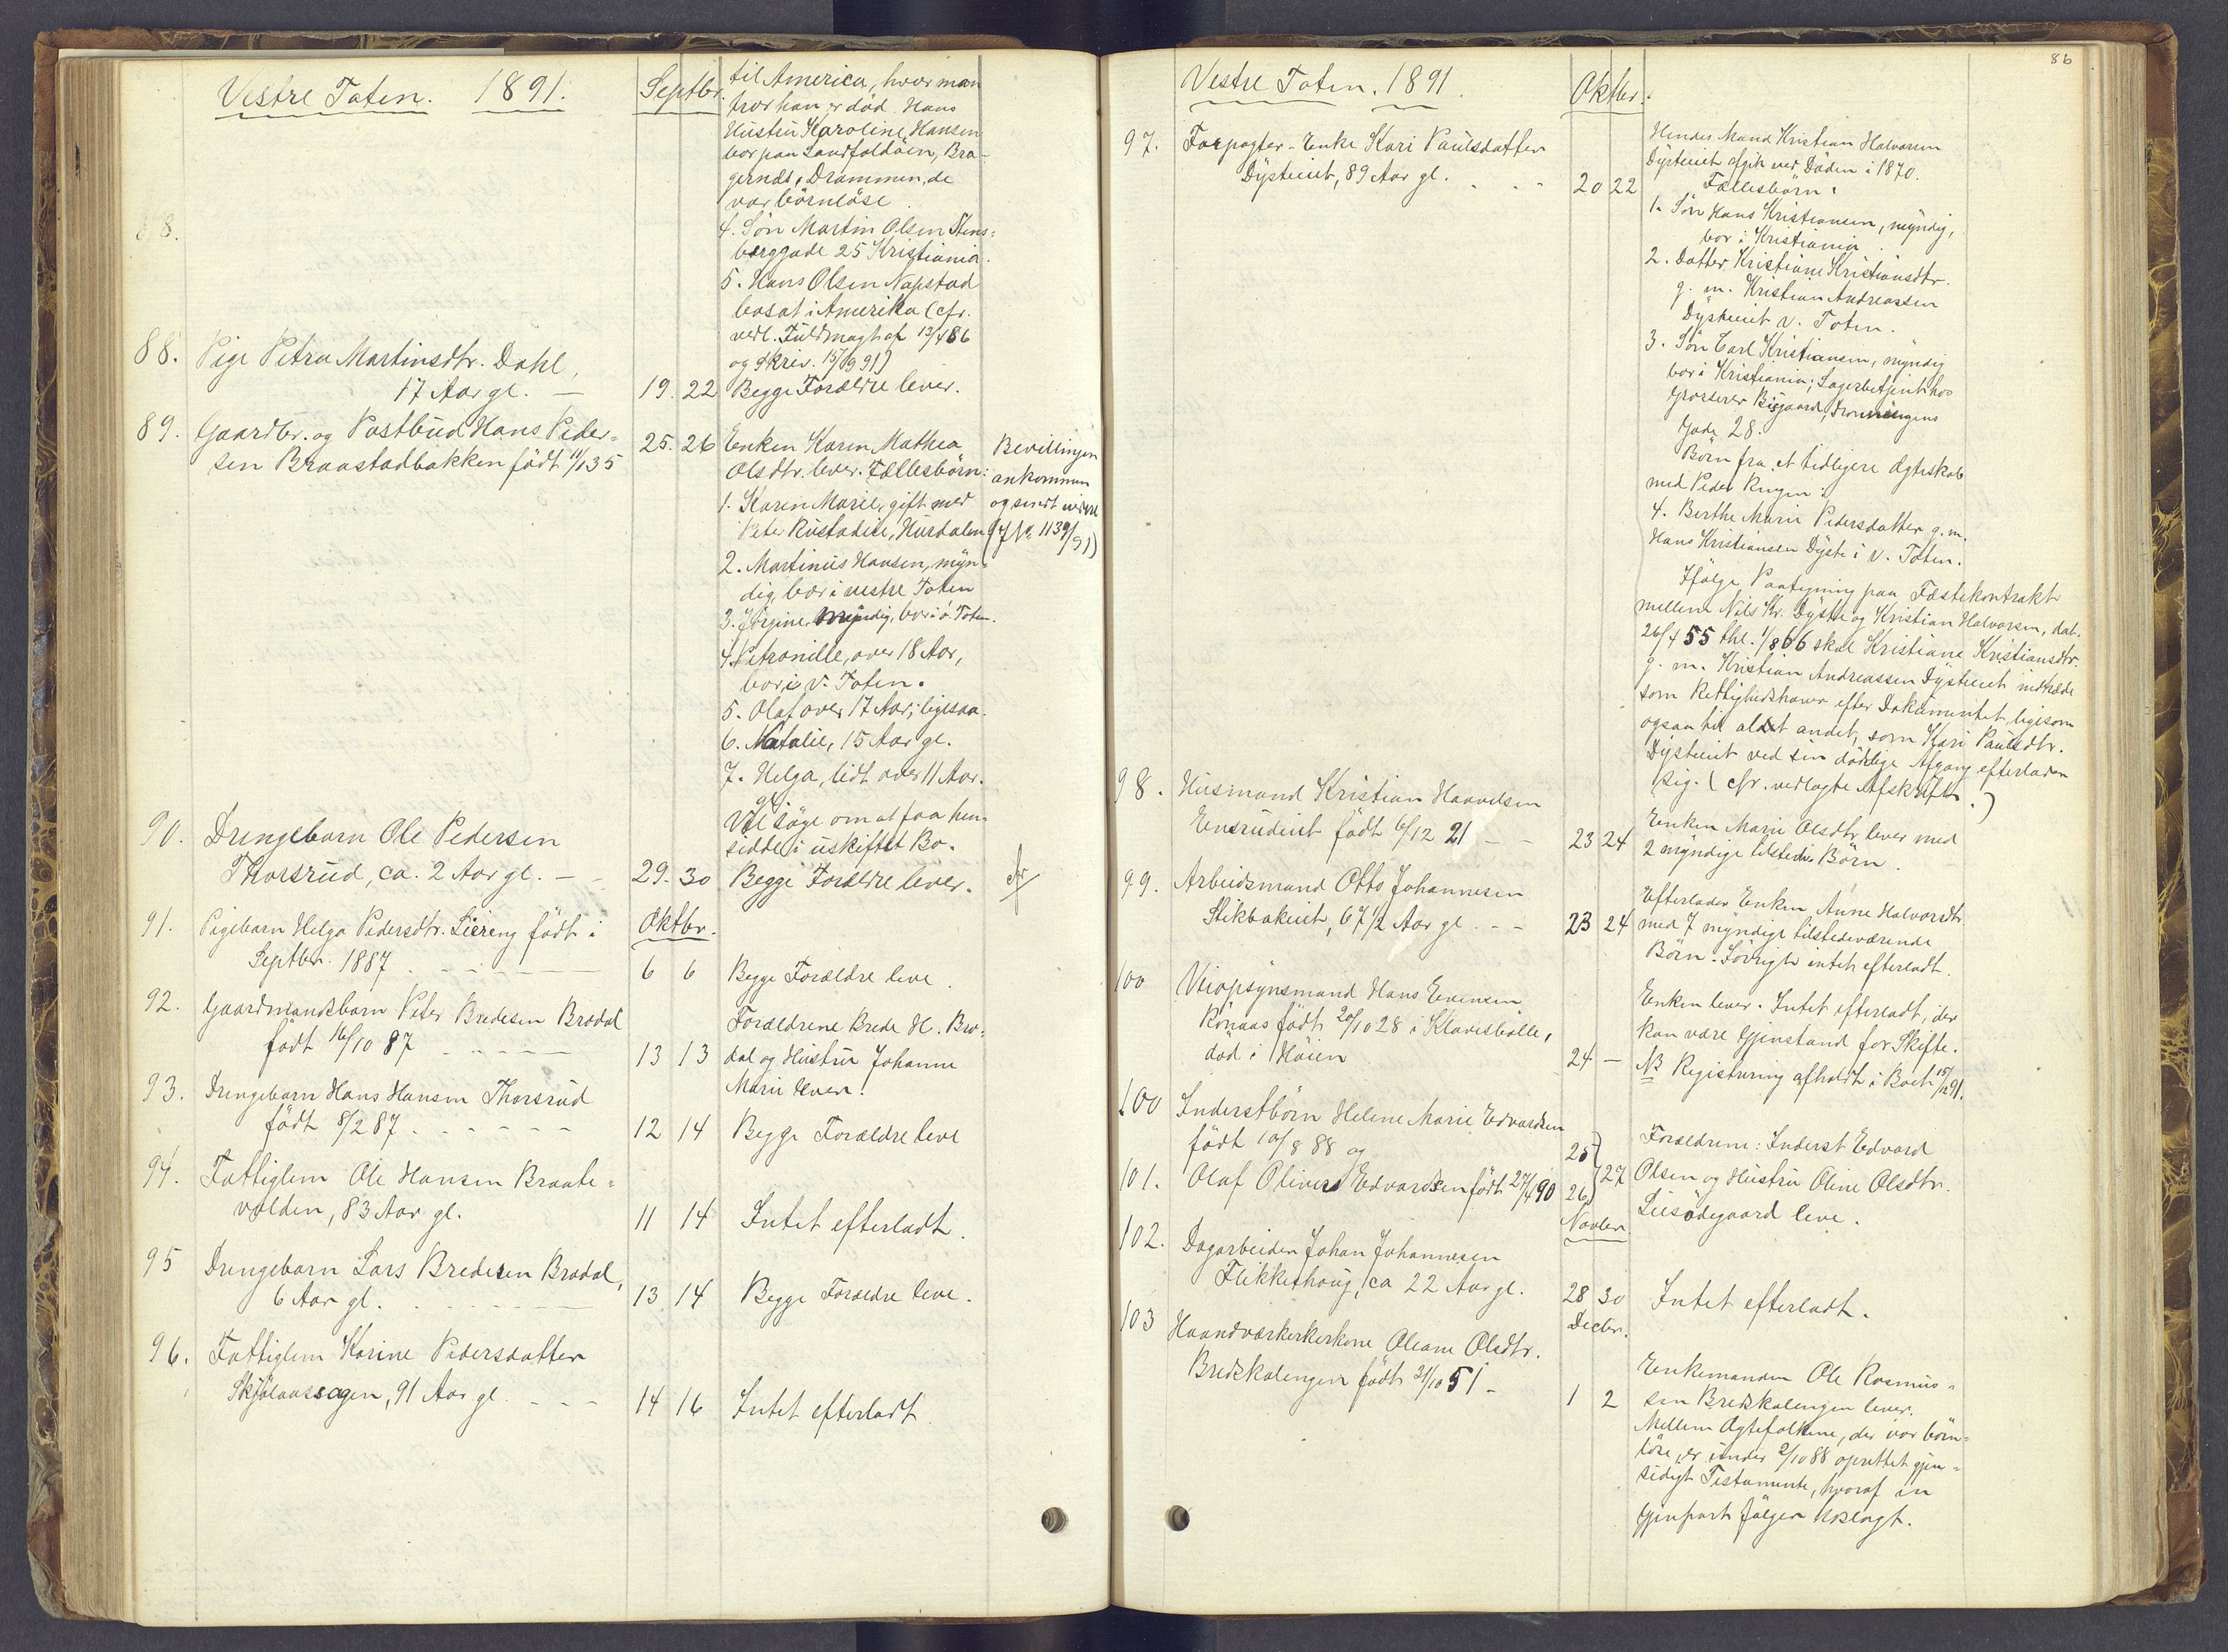 Vestre Toten. 1891.
Septbr.
til America, hvor man
tror han er död. Hans
Hustru Karoline Hansen
bor paa Landfaldöen, Bra-
gernæs, Drammen, de
var börnlöse.
4. Sön Martin Olsen Stens-
berggade 25 Kristiania.
5. Hans Olsen Napstad
bosat i Amerika (cfr.
vedl. Fuldmagt af 13/4 86
og Skriv. 15/9 91)
88.
88. Pige Petra Martinsdtr. Dahl,
17 Aar gl. — 19. 22 Begge Forældre lever.
89. Gaardbr. og Postbud Hans Peder-
sen Braastadbakken födt 11/1 35
25. 26 Enken Karen Mathea
Olsdtr. lever. Fællesbörn:
1. Karen Marie, gift med
Peter Rustadeie, Hurdalen
2. Martinus Hansen, myn-
dig, bor i vestre Toten
3. Jörgine, myndig, bor i ö. Toten.
4. Petronille, over 18 Aar,
bor i v. Toten.
5. Olaf over 17 Aar; ligesaa.
6. Natalie, 15 Aar gl.
7. Helga, lidt over 11 Aar.
gl.
Vil söge om at faa hen-
sidde i uskiftet Bo.
Bevillingen
ankommen
og sendt videre
(J No. 1139/91)
90. Drengebarn Ole Pedersen
Thorsrud, ca. 2 Aar gl. — - 29. 30 Begge Forældre lever.
91. Pigebarn Helga Pedersdtr. Liereng födt i
Oktbr.
Septbr. 1887 6 6 Begge Forældre leve.
92. Gaardmandsbarn Peter Bredesen Brodal
födt 16/10 87 13 13
Forældrene Brede H. Bro-
dal og Hustru Johanne
Marie lever.
93. Drengebarn Hans Hansen Thorsrud
födt 8/2 87 12 14 Begge Forældre leve
94. Fattiglem Ole Hansen Braate-
volden, 83 Aar gl. 11 14 Intet efterladt.
95 Drengebarn Lars Bredesen Brodal,
6 Aar gl. 13 14 Begge Forældre leve.
96. Fattiglem Karine Pedersdatter
Skjölaassagen, 91 Aar gl. 14 16 Intet efterladt.
86
Vestre Toten. 1891.
Oktbr.
97. Forpagter-Enke Kari Paulsdatter
Dysteeiet, 89 Aar gl. 20 22
Hendes Mand Kristian Halvorsen
Dysteeiet afgik ved Döden i 1870.
Fællesbörn:
1. Sön Hans Kristiansen, myndig,
bor i Kristiania.
2. Datter Kristiane Kristiansdtr.
g. m. Kristian Andreassen
Dysteeiet v. Toten.
3. Sön Carl Kristiansen, myndig
bor i Kristiania; Lagerbetjent hos
Grosserer Bisgaard, Dronningens
Gade 28.
Börn fra et tidligere Ægteskab
med Peder Ringen:
4. Berthe Marie Pedersdatter g. m.
Hans Kristiansen Dyste i v. Toten.
Ifölge Paategning paa Fæstekontrakt
mellem Nils Kr. Dyste og Kristian Halvorsen, dat.
26/4 55 thl. 1/8 66 skal Kristiane Kristiansdtr.
g. m. Kristian Andreassen Dysteeiet indtræde
som Rettighedshaver efter Dokumentet, ligesom
ogsaa til aldt andet, som Kari Paulsdtr.
Dysteeiet ved sin dödelige Afgang efterlader
sig. (cfr. vedlagte Afskrifter.)
98. Husmand Kristian Haavelsen
Eensrudeiet födt 6/12 21 — - 23 24
Enken Marie Olsdtr. lever med
2 myndige tilstedev. Börn.
99. Arbeidsmand Otto Johannesen
Stikbakeiet, 67 1/2 Aar gl. - - 23 24
Efterlader Enken Anne Halvorsdtr.
med 7 myndige tilstedeværende
Börn. Iövrigt intet efterladt.
100 Veiopsynsmand Hans Evensen
Rönaas födt 20/10 28 i Klæveshölle,
död i Höien 24 —
Enken lever. Intet efterladt, der
kan være Gjenstand for Skifte.
NB Registrering afholdt i Boet 15/12 91.
100 Inderstbörn Helene Marie Edvardsen
födt 10/8 88 og 25
101. Olaf Oliver Edvardsen födt 27/4 90 26 27
Forældrene: Inderst Edvard
Olsen og Hustru Oline Olsdtr.
Liesödegaard leve.
Novbr.
102. Dagarbeider Johan Johannesen
Flikkeshaug, ca 22 Aar gl. 28 30 Intet efterladt.
Decbr.
103 Haandværkerkerkone Oleane Olsdtr.
Bredskalengen födt 31/10 51 - 1 2
Enkemanden Ole Rasmus-
sen Bredskalengen lever.
Mellem Ægtefolkene, der var börn-
löse, er under 2/10 88 oprettet gjen-
sidigt Testamente, hvoraf en
Gjenpart fölger hoslagt.